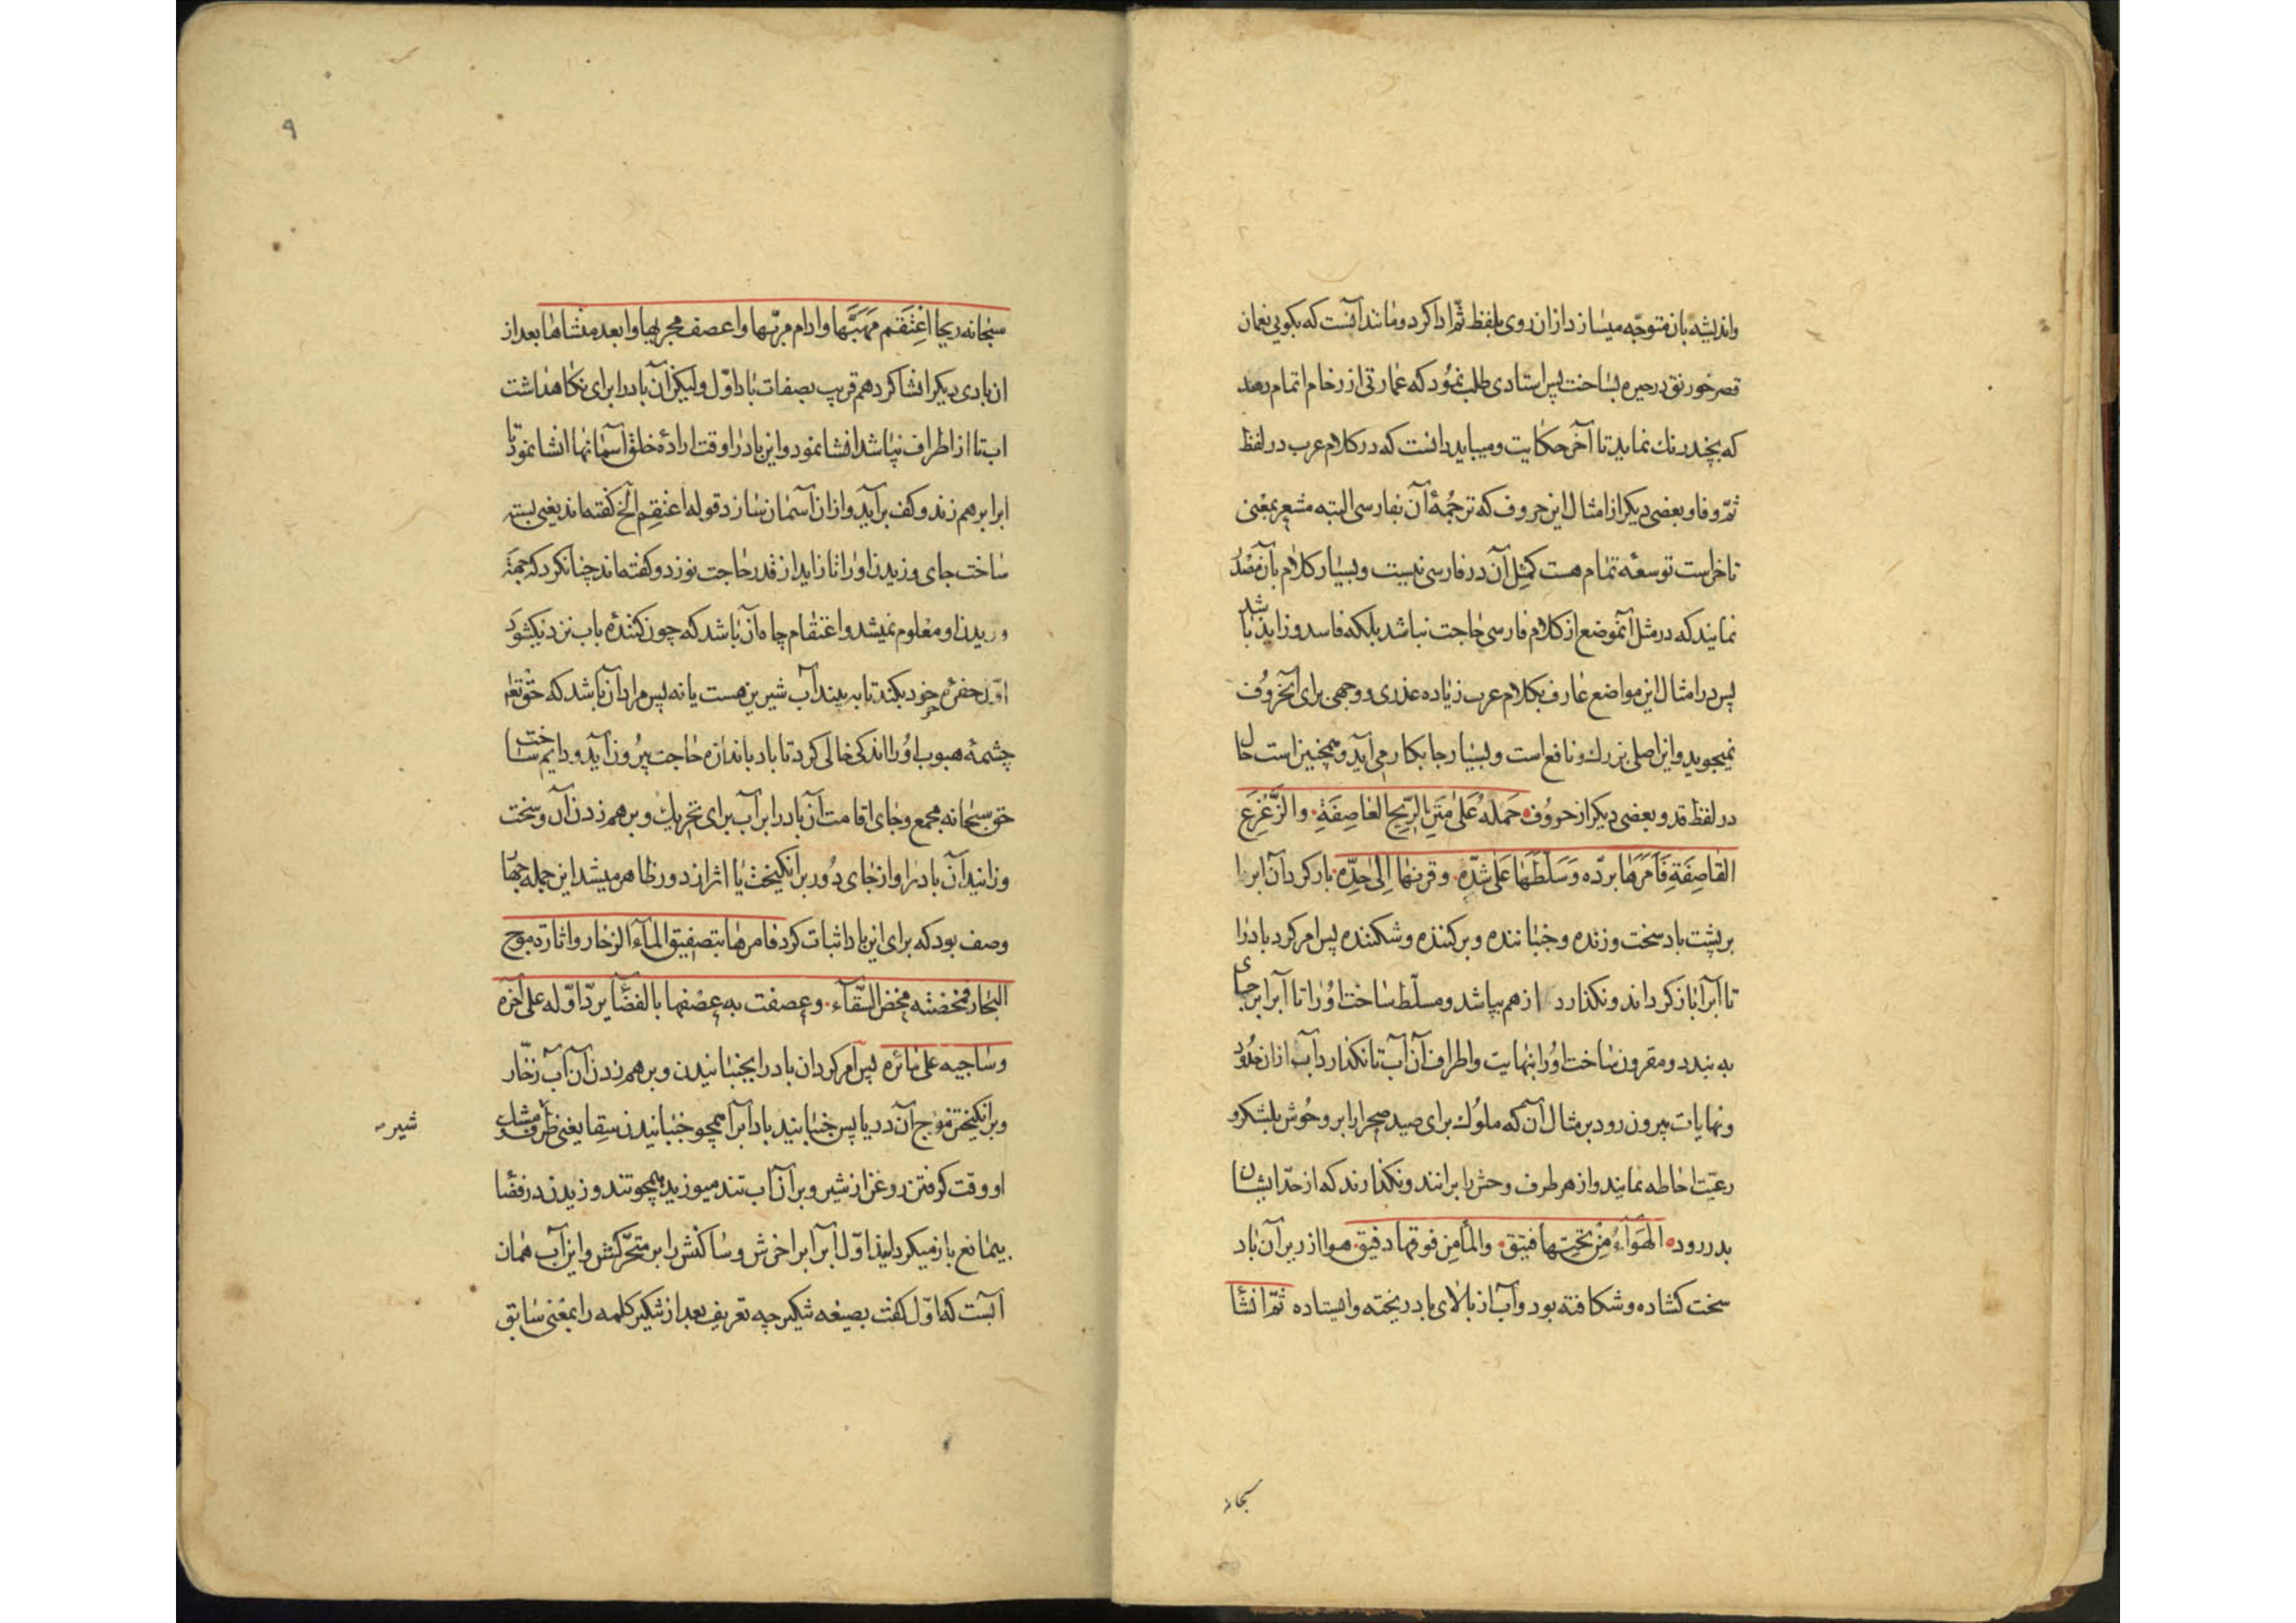 واندیشه بان متوجّه میسازد ازان روی بلفظ ثمّ ادا کرد و مانند آنست که بکویی نعمان
قصر خورنق در حیره بساخت پس استادی طلب نمود که عمارتی از رخام اتمام دهد
که بچند رنك نماید تا آخر حکایت و میباید دانست که در کلام عرب در لفظ
ثمّ و فا و بعضی دیکر از امثال این حروف که ترجمهٔ آن بفارسی البته مشعر بمعنی
تاخر است توسعهٔ تمام هست کمثل آن در فارسی نیست و بسیار کلام بآن مصدّر
نمایند که در مثل آنموضع از کلام فارسی حاجت نباشد بلکه فاسد و زاید باشد
پس در امثال این مواضع عارف بکلام عرب زیاده عذری و وجهی برای آنحروف
نمیجوید و این اصلی بزرك و نافع است و بسیار جا بکار می آید و همچنین است حال
در لفظ قد و بعضی دیکر از حروف حَمَلَهُ عَلى مَتنِ الرّیح العٰاصِفَةِ والزَّعْزَعِ
القٰاصِفَةِ فَاَمَرَهٰا بردّه وَسَلَّطَهٰا عَلى شدّه وقرنهٰا اِلىٰ حدِّه بار کرد آن ابرا
بر پشت باد سخت وزنده و جنباننده و برکننده و شکننده پس امر کرد باد را
تا آبرا باز کرداند و نکذارد از هم بپاشد و مسلّط ساخت او را تا آبرا بر جای
به بندد و مقرون ساخت او را بنهایت و اطراف آن آب تا نکذارد آب ازان حدود
و نهایات بیرون رود بر مثال آن که ملوك برای صید صحرا را بر وحوش بلشکر و
رعیّت احاطه نمایند و از هر طرف وحش را برانند و نکذارند که از حدّ ایشان
بدر رود الهَوَآءُ مِنْ تحتِهٰا فتیق والمآ مِن فوقهٰا دفیق هوا از زیر آن باد
سخت کشاده و شکافته بود و آب از بالای باد ریخته و ایستاده ثمّ انشأ
سبحانه
۹
سبحانه ریحا اعْتَقَم مَهَبَّهٰا وادام مربّهٰا واعصف مجریهٰا وابعد منشاهٰا بعد از
ان بادی دیکر انشا کرد هم قریب بصفات باد اوّل ولیکن آن باد را برای نکاهداشت
اب تا از اطراف نپاشد انشا نمود و این باد را وقت ارادهٔ خلق آسمانها انشا نمود تا
ابرا برهم زند و کف برآید و ازان آسمان سازد قوله اعتقم الخ کفته‌اند یعنی بسته
ساخت جای وزیدن او را تا زاید از قدر حاجت نوزد و کفته‌اند چنان کرد که جهة
وزیدن او معلوم نمیشد و اعتقام چاه آن باشد که چون کنندهٔ باب نزدیك شود
اوّل حفرهٔ خورد بکند تا به بیند آب شیرین هست یا نه پس مراد آن باشد که حق تعٰ
چشمهٔ هبوب او را اندکی خالی کرد تا باد باندازه حاجت بیرون آید و دایم ساخت
حق سبحانه مجمع و جای اقامت آن باد را بر آب برای تحریك و برهم زدن آن و سخت
وزانید آن باد را و از جای دور بر انکیخت یا اثر از دور ظاهر میشد این جمله چهار
وصف بود که برای این باد اثبات کرد فامرهٰا بتصفیق المآء الزخار واثارة موج
البحار فمخضته مخض السّقآء وعصفت به عصفها بالفضٰا یردّ اوّله علی آخره
وساجیه علی مائره پس امر کرد ان باد را بجنبانیدن و برهم زدن آن آب زخّار
و برانکیختن موج آن دریا پس جنبانید باد آبرا همچو جنبانیدن سقا یعنی ظرف مشك
شیر
او وقت کرفتن روغن از شیر و بر آن آب تند میوزید همچو تند وزیدن در فضا
بیمانع باز میکردانید اوّل آبرا بر اخرش و ساکنش را بر متحرّکش و این آب همان
آبست که اوّل کفت بصیغه تنکیر چه تعریف بعد از تنکیر کلمه را بمعنی سابق